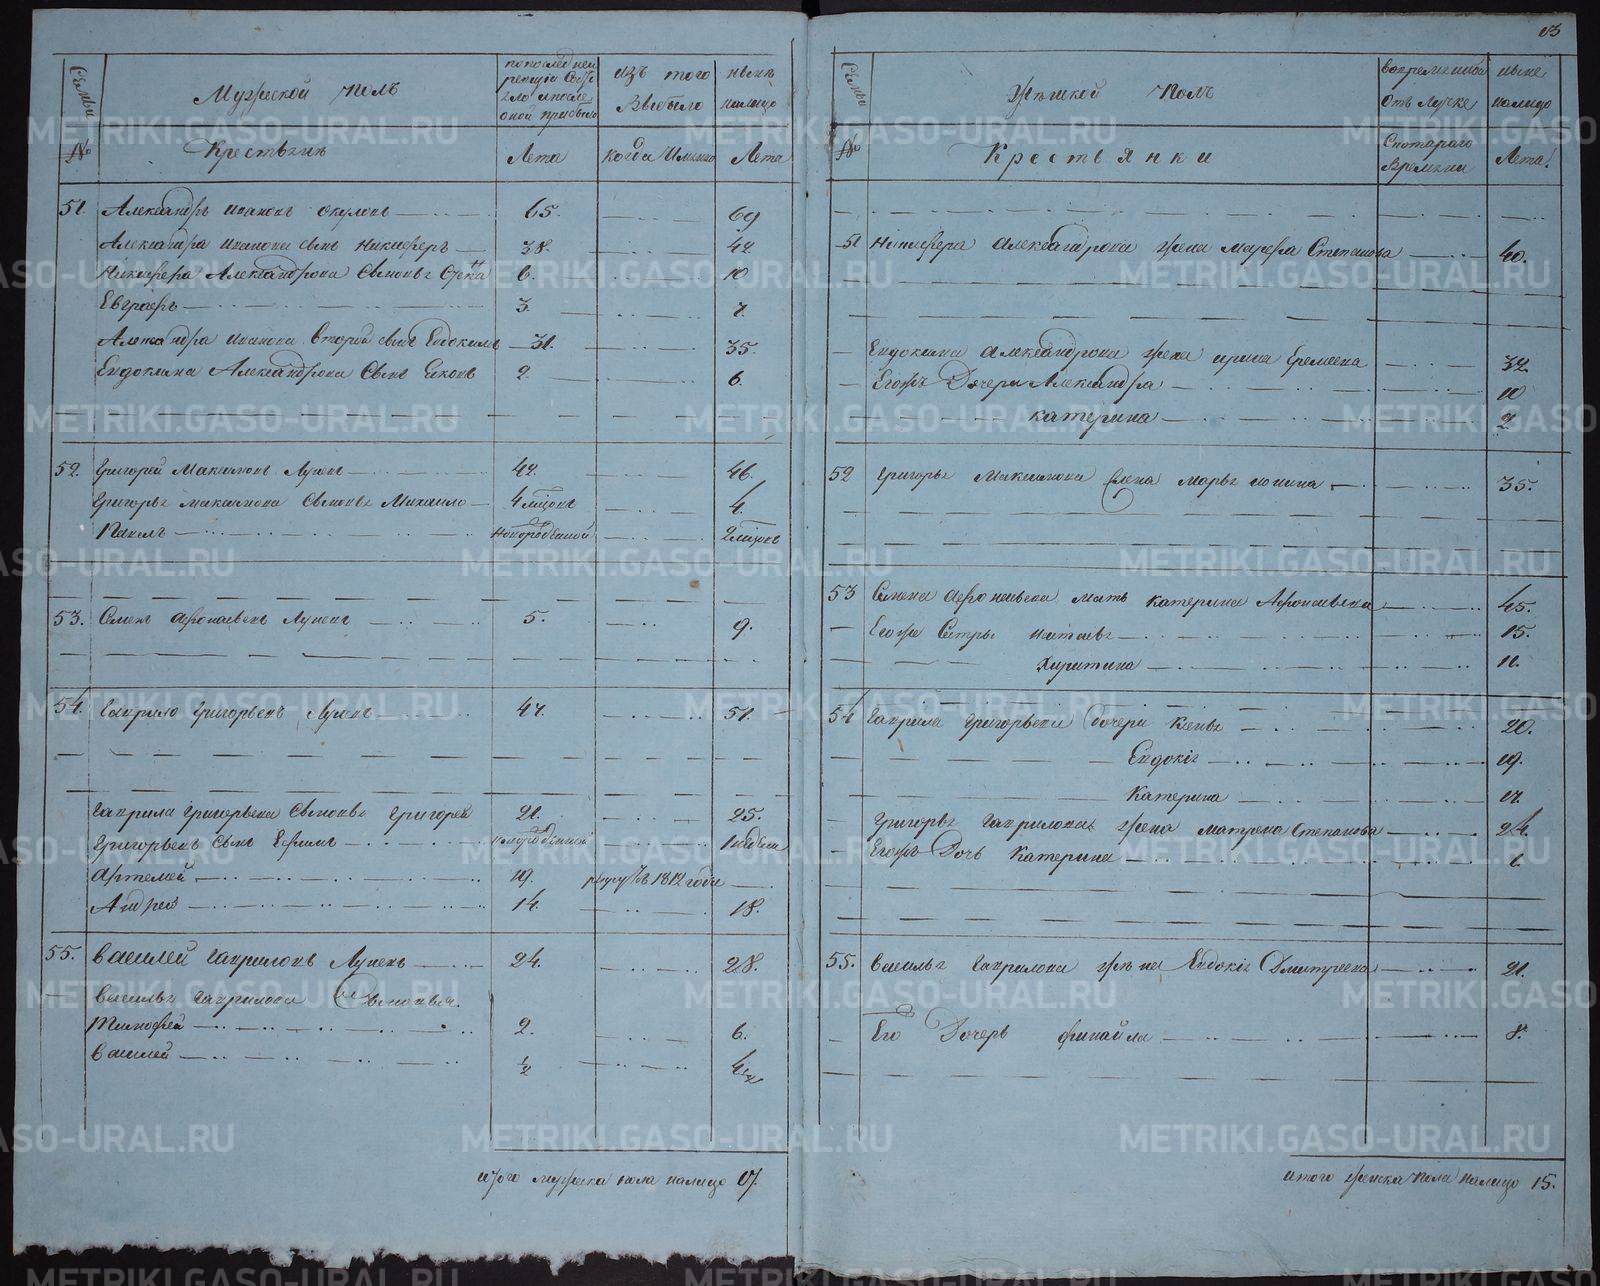 83
Семьи
Мужеской полъ
по последней
ревизіи состо
яло и после
оной прибыло
изъ того
выбыло
ныне
налицо
№
Крестьяне
Лета
когда имянно
Лета
51.
Александръ Ивановъ Окуловъ
65.
69
Александра Иванова сынъ Никиферъ
38.
42
Никифера Александрова сыновья
6.
10
Евграфъ
3.
7.
Александра Иванова второй сынъ Евдокимъ
31.
35.
Евдокима Александрова сынъ
2.
6.
52.
Григорей Максимовъ Луневъ
42.
46.
Григорья Максимова сыновья Михайло
4 мцовъ
4.
Павелъ
новорожденной
2 мцовъ
53.
Семенъ Афонасьевъ Луневъ
5.
9.
54.
Гаврило Григорьевъ Луневъ
47.
51.
Гаврила Григорьева сыновья Григорей
21.
25.
Григорьевъ сынъ Ефимъ
новорожденной
Артемей
19.
рекрутъ 1812 года
Андрей
14.
18.
55.
Василей Гавриловъ Луневъ
24.
28.
Василья Гаврилова сыновья.
Тимофей
2.
6.
Василей
½
4½
итого мужеска пола налицо 17.
Семьи
Женской полъ
во временной
отлучке
ныне
налицо
№
Крестьянки
с котораго
времени
Лета.
51
Никифера Александрова жена Марфа Степанова
40.
Евдокима Александрова жена Ирина Еремеева
32
Егожъ дочери Александра
10
Катерина
7
52
Григорья Максимова жена Марья
35.
53
Семена Афонасьева мать Катерина Афонасьева
45.
Егоже сестры Наталья
15.
Харитина
11.
54
Гаврила Григорьева дочери
20.
Евдокія
19.
Катерина
17.
Григорья Гаврилова жена Матрена Степанова
24.
Егожъ дочь Катерина
1.
55.
Василья Гаврилова жена Евдокія Дмитреева
21.
Его дочерь
8.
итого женска пола налицо 15.
METRIKI.GASO-URAL.RU